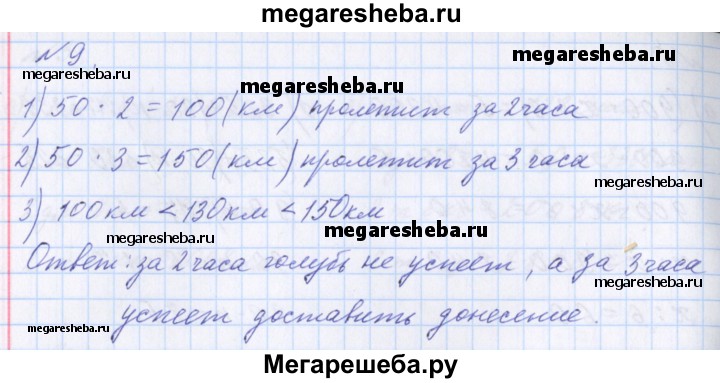 megaresheba.ru
№9.
megaresheba.ru
megaresheba.ru
1) 50 · 2 = 100 (км) пролетит за 2 часа
2) 50 · 3 = 150 (км) пролетит за 3 часа
megaresheba.ru
3) 100 км < 130 км < 150 км
megaresheba.ru
megaresheba.ru
Ответ: за 2 часа голубь не успеет, а за 3 часа
megaresheba.ru
успеет доставить донесение.
megaresheba.ru
megaresheba.ru
Мегарешеба.ру